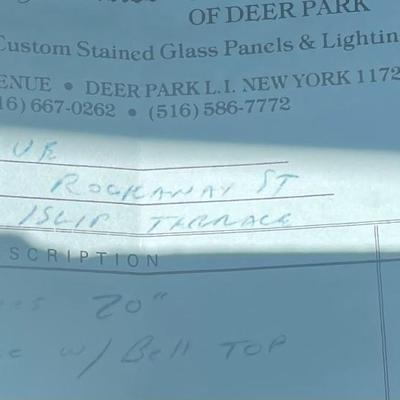 OF DEER PARK
Custom Stained Glass Panels & Lightin
ENUE • DEER PARK L.I. NEW YORK 1172
16) 667-0262 • (516) 586-7772
UE
ROCKAWAY ST
ISLIP TERRACE
SCRIPTION
20"
w/ Bell TOP